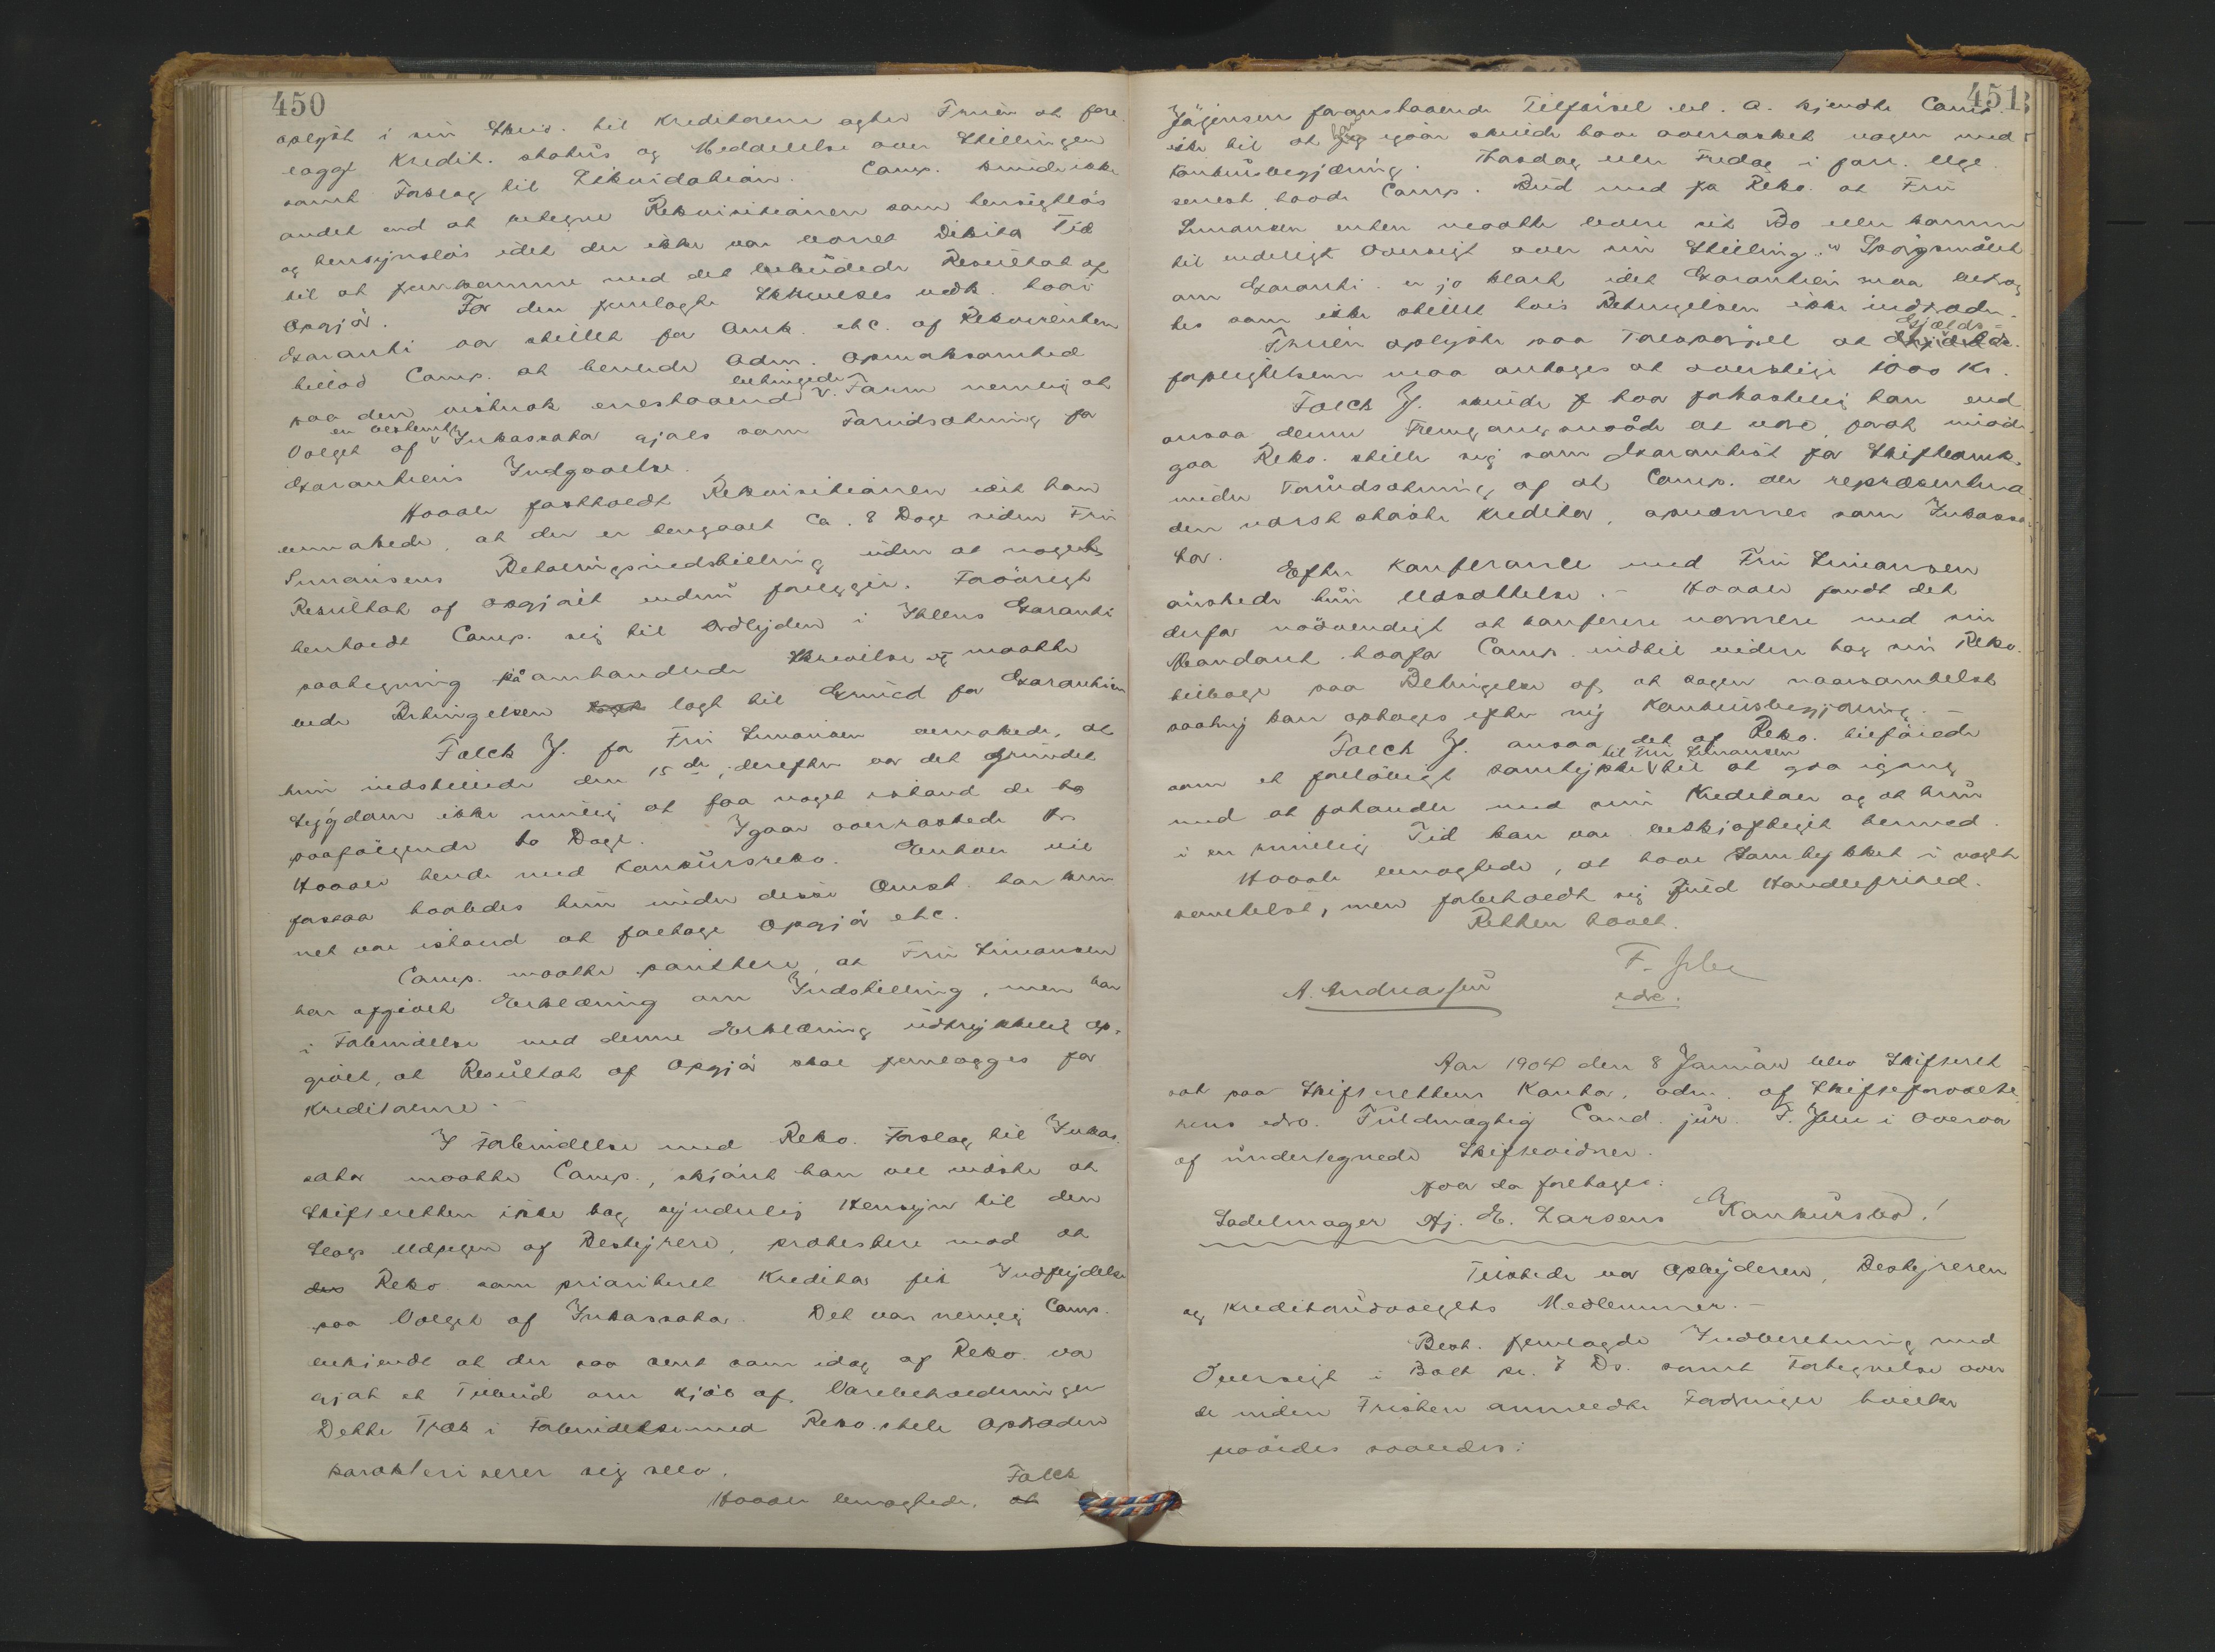 450
oplyst i sin Skriv. til Kreditorerne agter Fruen at fore-
lægge Kredit. status og Meddelelse over Stillingen
samt Forslag til Likvidation. Comp. kunde ikke
andet end at betegne Rekvisitionen som hensigtløs
og hensynsløs idet der ikke var levnet Debitor Tid
til at fremkomme med det bebudede Resultat af
Opgjør. For den fremlagte Skrivelses vedk. hvor
Garanti var stillet for Omk. etc. af Rekvirenten
tillod Comp. at henlede Adm. Opmærksomhed
paa den vistnok enestaaende betingede Form nemlig at
Valget af en bestemt Inkassator gjøres som Forudsætning for
Garantiens Indgaaelse.
Haaler fastholdt Rekvisitionen idet han
bemærkede, at der er hengaaet ca. 8 Dage siden Fru
Simonsens Betalingsindstilling uden at noget
Resultat af Opgjøret endnu foreligger. Forøvrigt
henholdt Comp. sig til Ordlyden i Ihlens Garanti
paategning på omhandlede Skrivelse og maatte
bede Betingelsen lagt til Grund for Garantien
Falck J. for Fru Simonsen bemærkede, at
hun indstillede den 15de, derefter var det grundet
Sygdom ikke mulig at faa noget istand de to
paafølgende to Dage. Igaar overraskede Hr
Haaler hende med Konkursrekv. Enhver vil
forstaa hvorledes hun under disse Omst. har kun
net være istand at foretage Opgjør etc.
Comp. maatte pointere, at Fru Simonsen
har afgivet Erklæring om Indstilling, men har
i Forbindelse med denne Erklæring udtrykkelig op-
givet, at Resultat af Opgjør skal fremlægges for
Kreditorerne.-
I Forbindelse med Rekv. Forslag til Inkas-
sator maatte Comp., skjønt han vel vidste at
Skifteretten ikke tog synderlig Hensyn til den
Slags Udpegen af Bestyrere, protestere mod at
Rekv som prioriteret Kreditor fik Indflydelse
paa Valget af Inkassator. Det var nemlig Comp.
bekjendt at der saa sent som idag af Rekv. var
gjort et Tilbud om Kjøb af Varebeholdningen
Dette Træk i Forbindelse med Rekv. hele Optræden
karakteriserer sig selv.
Haaler benægtede, at Falck
451
Jørgensen foranstaaende Tilførsel bl. a. kjendte Comp.
ikke til at igaar skulde have overrasket nogen med
Konkursbegjæring. Torsdag eller Fredag i forr. Uge
senest havde Comp. Bud med fra Rekv. at Fru
Simonsen enten maatte levere sit Bo eller komme
til endeligt Oversigt over sin Stilling. Spørgsmålet
om Garanti er jo klart idet Garantien maa betrag
tes som ikke stillet hvis Betingelsen ikke indtræder.
Fruen oplyste paa Forespørgsel at Gjælds-
forpligtelserne maa antages at overstige 1000 Kr.
Falck J. kunde hvor forkastelig han end
ansaa denne Fremgangsmåde at være, forat imøde
gaa Rekv. stille sig som Garantist for Skifteomk.
under Forudsætning af at Comp. der repræsenterer
den næst største Kreditor, opnævnes som Inkassa-
tor.
Efter Konferance med Fru Simonsen
ønskede hun Udsættelse.- Haaler fandt det
derfor nødvendigt at konferere nærmere med sin
Mandant hvorfor Comp. indtil videre tog sin Rekv.
tilbage paa Betingelse af at Sagen naarsomhelst
paany kan optages efter ny Konkursbegjæring.-
Falck J. ansaa det af Rekv. tilførede
som et foreløbigt Samtykke til Fru Simonsen til at gaa igang
med at forhandle med sine Kreditorer og at hun
i en rimelig Tid kan være beskjæftiget hermed.
Haaler benægtede, at have Samtykket i noget
somhelst, men forbeholdt sig fuld Handlefrihed.
Retten hævet.
A. Andreassen
Aar 1904 den 8 Januar blev Skifteret
sat paa Skifterettens Kontor, adm. af Skifteforvalte
rens edsv. Fuldmægtig Cand. jur. F. i Overvær
af undertegnede Skiftevidner.
Hvor da foretages:
Sadelmager Hj. E. Larsens Konkursbo!
Tilstede var Opbyderen, Bestyreren
og Kreditorudvalgets Medlemmer.-
Best. fremlagde Indberetning med
Oversigt i Boet pr. 7 Ds. samt Fortegnelse over
de inden Fristen anmeldte Fordringer hvilke
prøvedes saaledes: